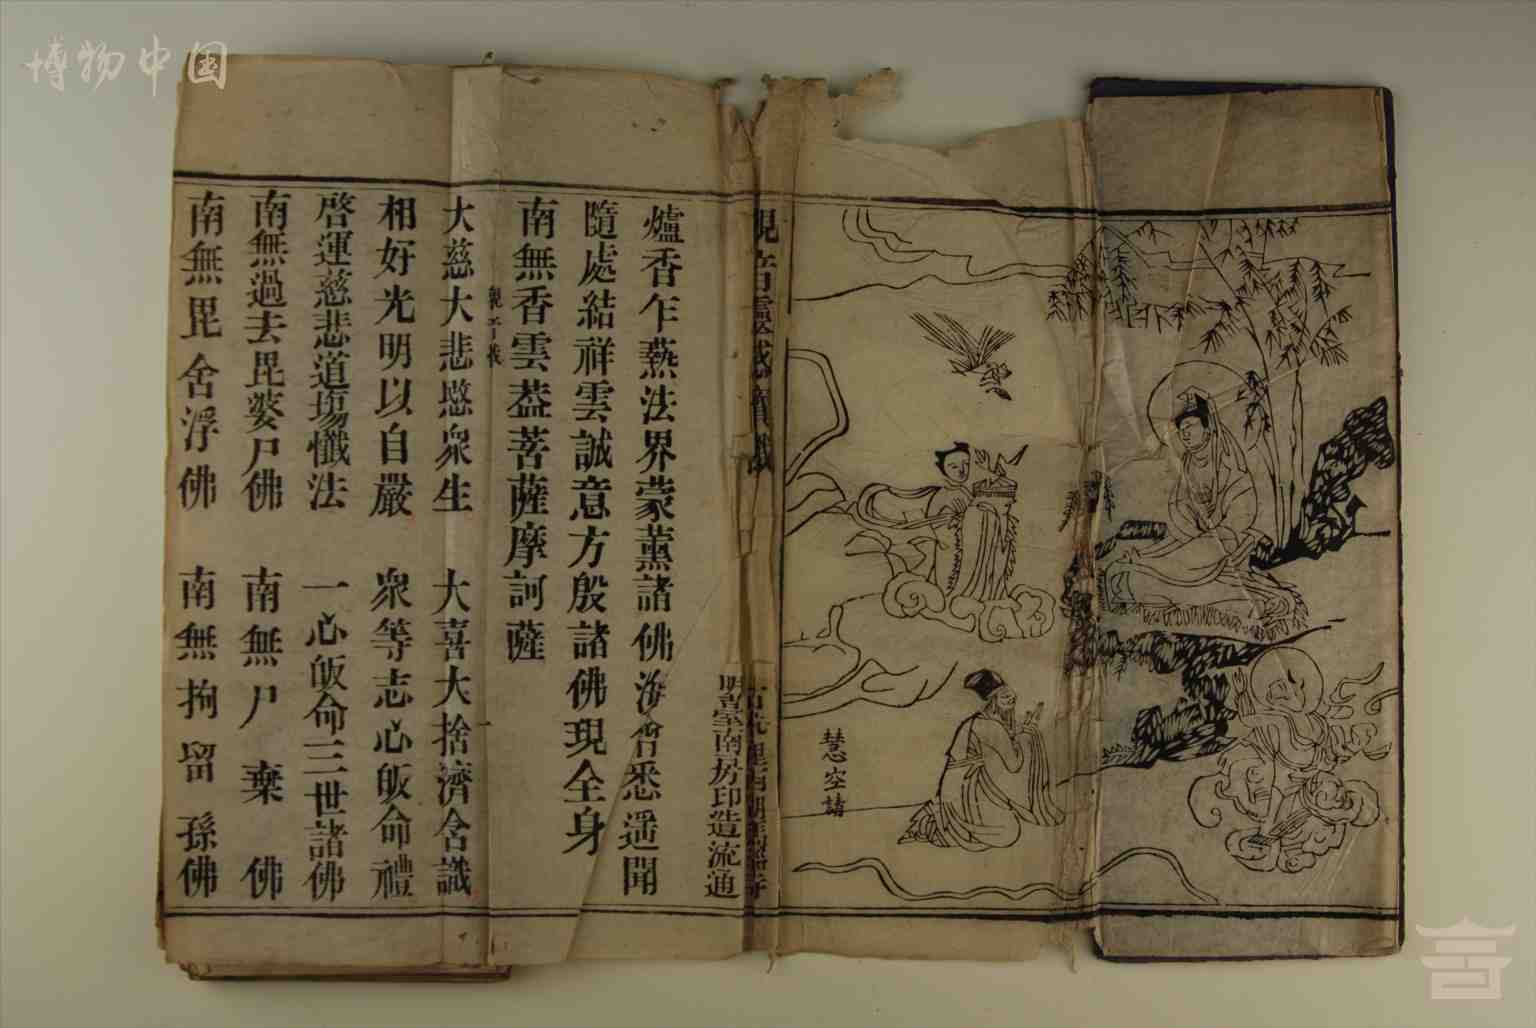 博物中国
慧空請
音靈感寶懺
南房印造流通
爐香乍爇法界蒙薰諸佛海會悉遥聞
隨處結祥雲誠意方殷諸佛現全身
南無香雲葢菩薩摩訶薩
大慈大悲愍衆生 大喜大捨濟含識
相好光明以自嚴 衆等志心皈命禮
啓運慈悲道塲懺法 一心皈命三世諸佛
南無過去毘婆尸佛 南無尸棄佛
南無毘舍浮佛 南無拘留孫佛